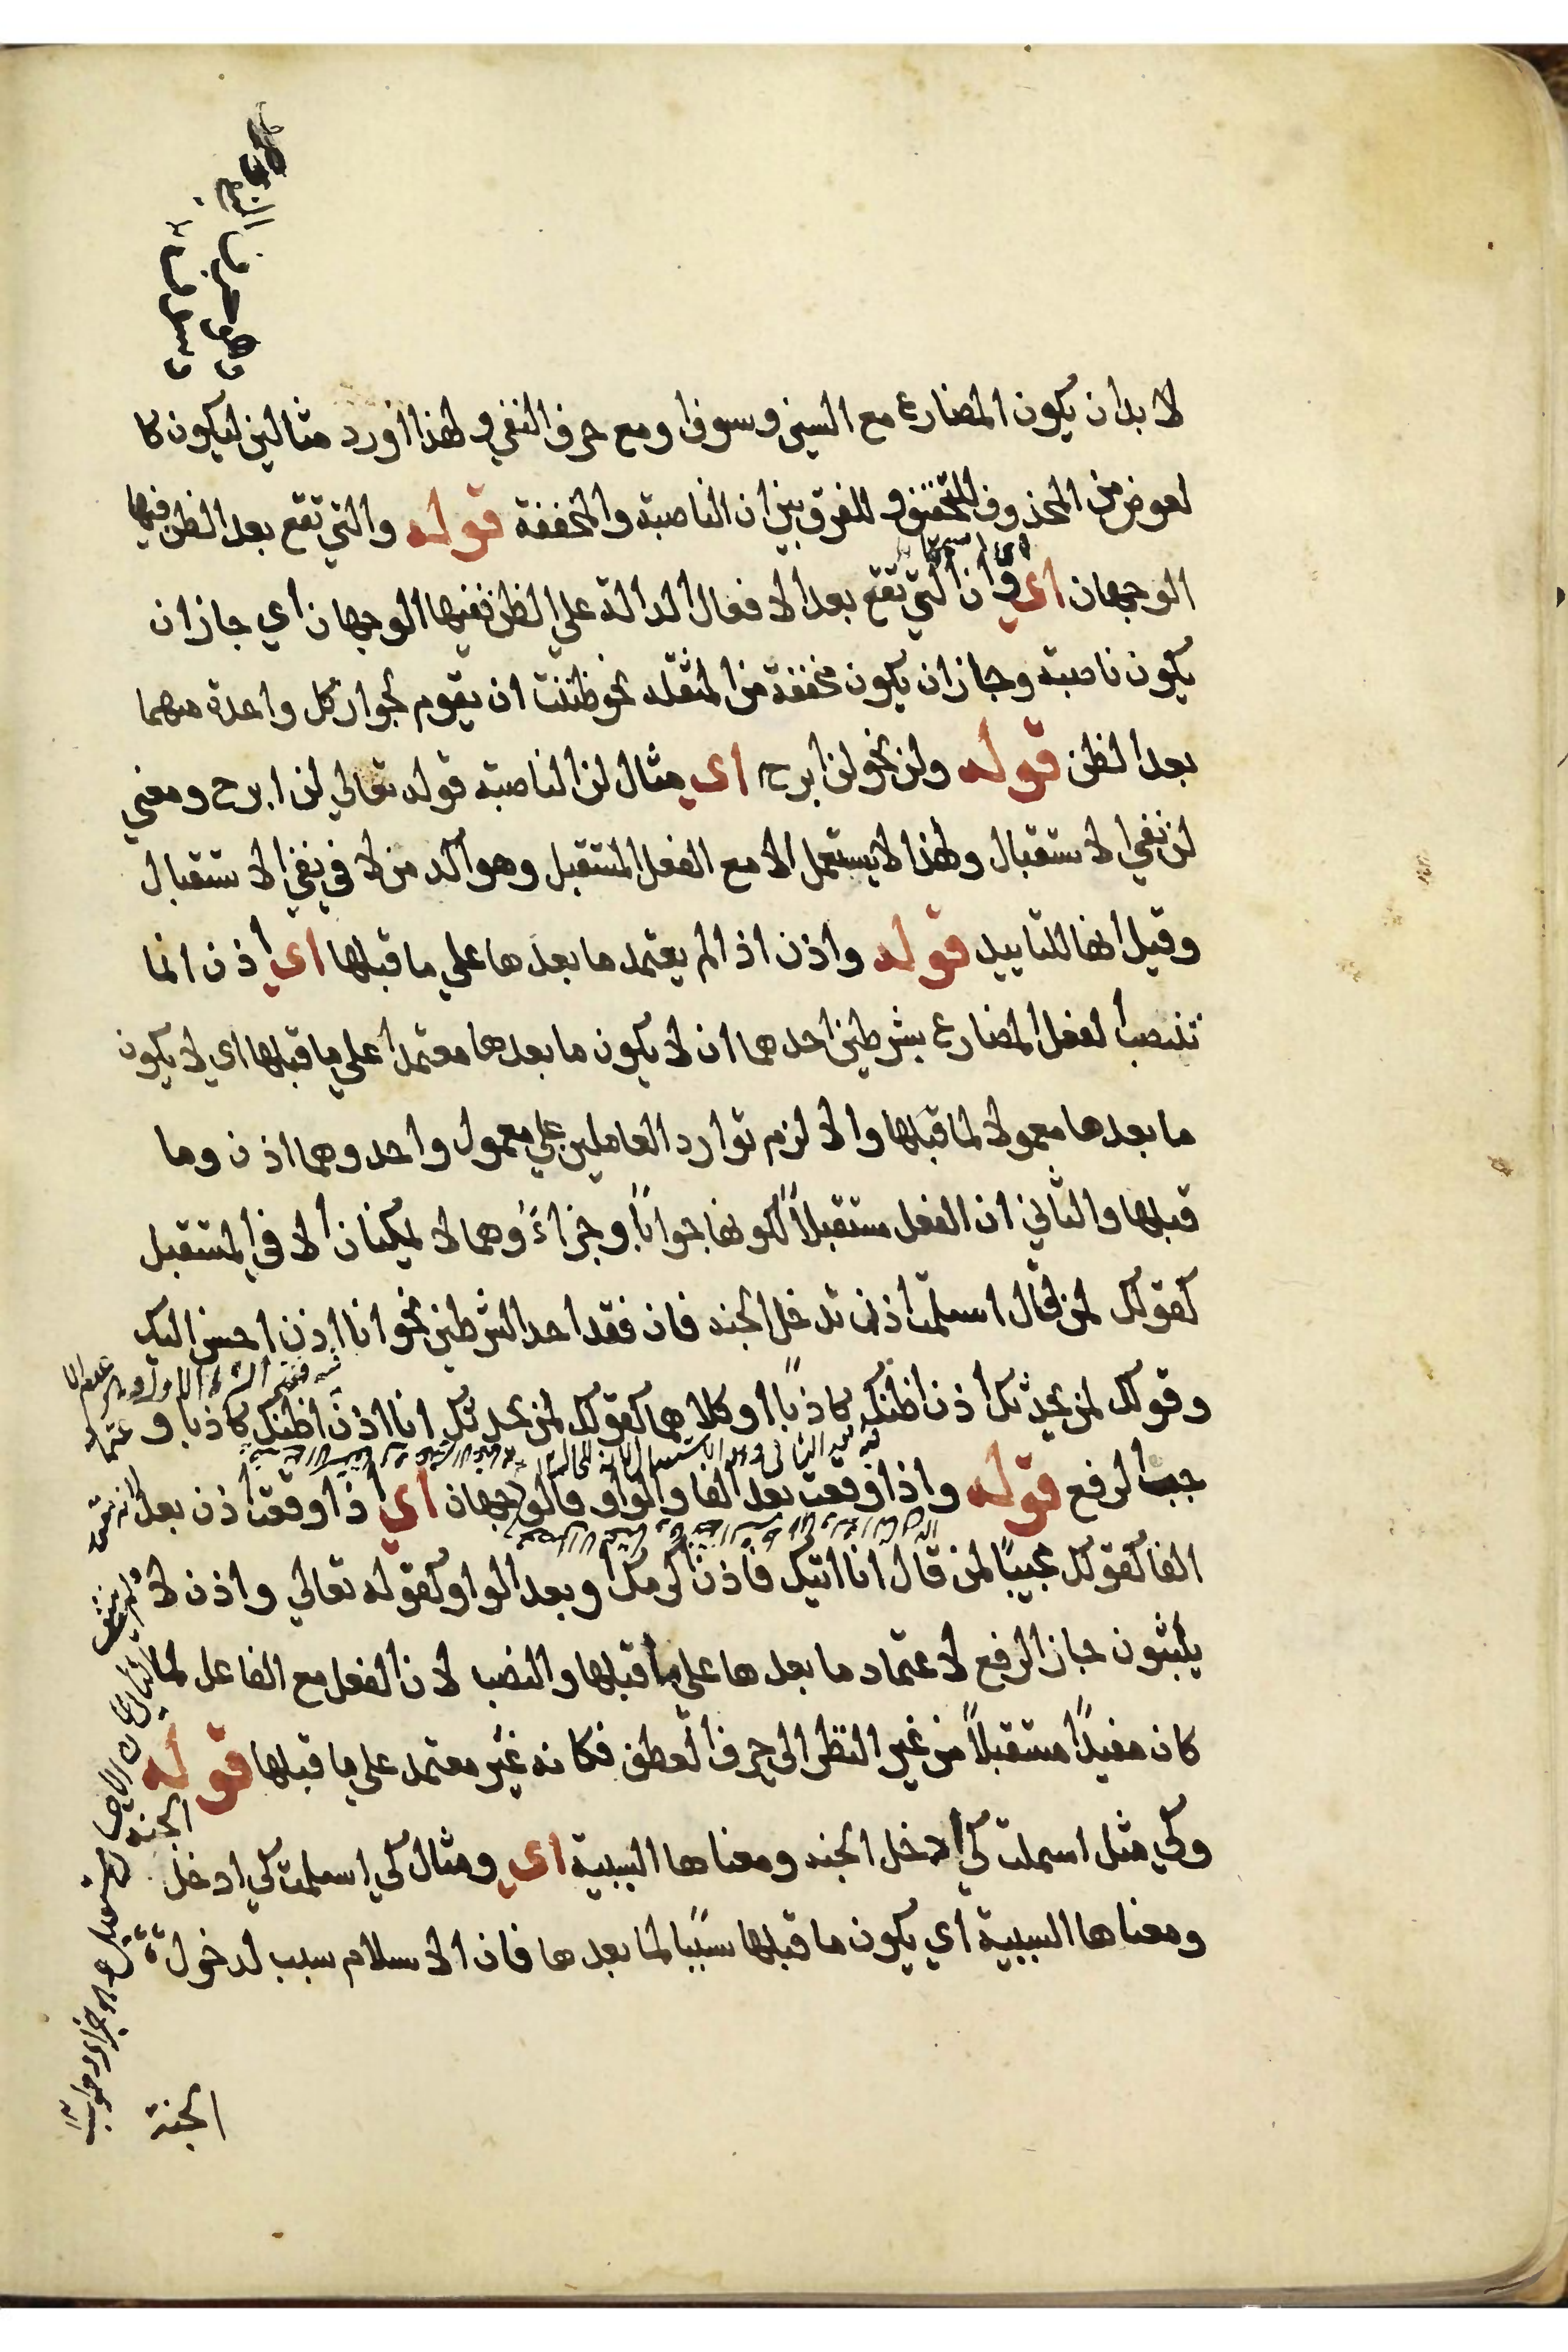 لا بد ان يكون المضارع مع السين وسوف او مع حرف النفي ولهذا اورد مثالين ليكون كا
لعوض من المحذوف للتخفيف وللفرق بين ان الناصبة والمخففة قوله والتي تقع بعد الظن فيها
الوجهان اي وان التي تقع بعد الافعال الدالة علي الظن ففيها الوجهان اي جاز ان
يكون ناصبة وجاز ان يكون مخففة من المثقله نحو ظننت ان يقوم لجواز كل واحدة منهما
بعد الظن قوله ولن نحو لن ابرح اي مثال لن الناصبة قوله تعالي لن ابرح ومعني
لن نفي الاستقبال ولهذا لا يستعمل الا مع الفعل المستقبل وهو آكد من لا في نفي الاستقبال
وقيل انها للتابيد قوله واذن اذا لم يعتمد ما بعدها علي ما قبلها اي اذن انما
تنصب الفعل المضارع بشرطين احدهما ان لا يكون ما بعدها معتمدا علي ما قبلها اي لا يكون
ما بعدها معمولا لما قبلها والا لزم توارد العاملين علي معمول واحد وهما اذن وما
قبلها والثاني ان الفعل مستقبلاً لكونها جواباً وجزاءً وهما لا يمكنان الا في المستقبل
كقولك لمن قال اسلمت اذن تدخل الجنه فان فقد احد الشرطين نحو انا اذن احسن اليك
وقولك لمن يحدثك اذن اظنك كاذباً او كلاهما كقولك لمن يحدثك انا اذن اظنك كاذبا و
جب الرفع قوله واذا وقعت بعد الفا والواو فالوجهان اي اذا وقعت اذن بعد
الفا كقولك مجيبًا لمن قال انا اتيك فاذن اكرمك وبعد الواو كقوله تعالي واذن لا
يلبثون جاز الرفع لاعتماد ما بعدها علي ما قبلها والنصب لان الفعل مع الفاعل لما
كان مفيدًا مستقبلاً من غير النظر الى حرف العطف فكانه غير معتمد علي ما قبلها قوله
وكي مثل اسلمت كي ادخل الجنه ومعناها السببية اي ومثال كي اسلمت كي ادخل الجنه
ومعناها السببية اي يكون ما قبلها سببًا لما بعدها فان الاسلام سبب لدخول
الجنة